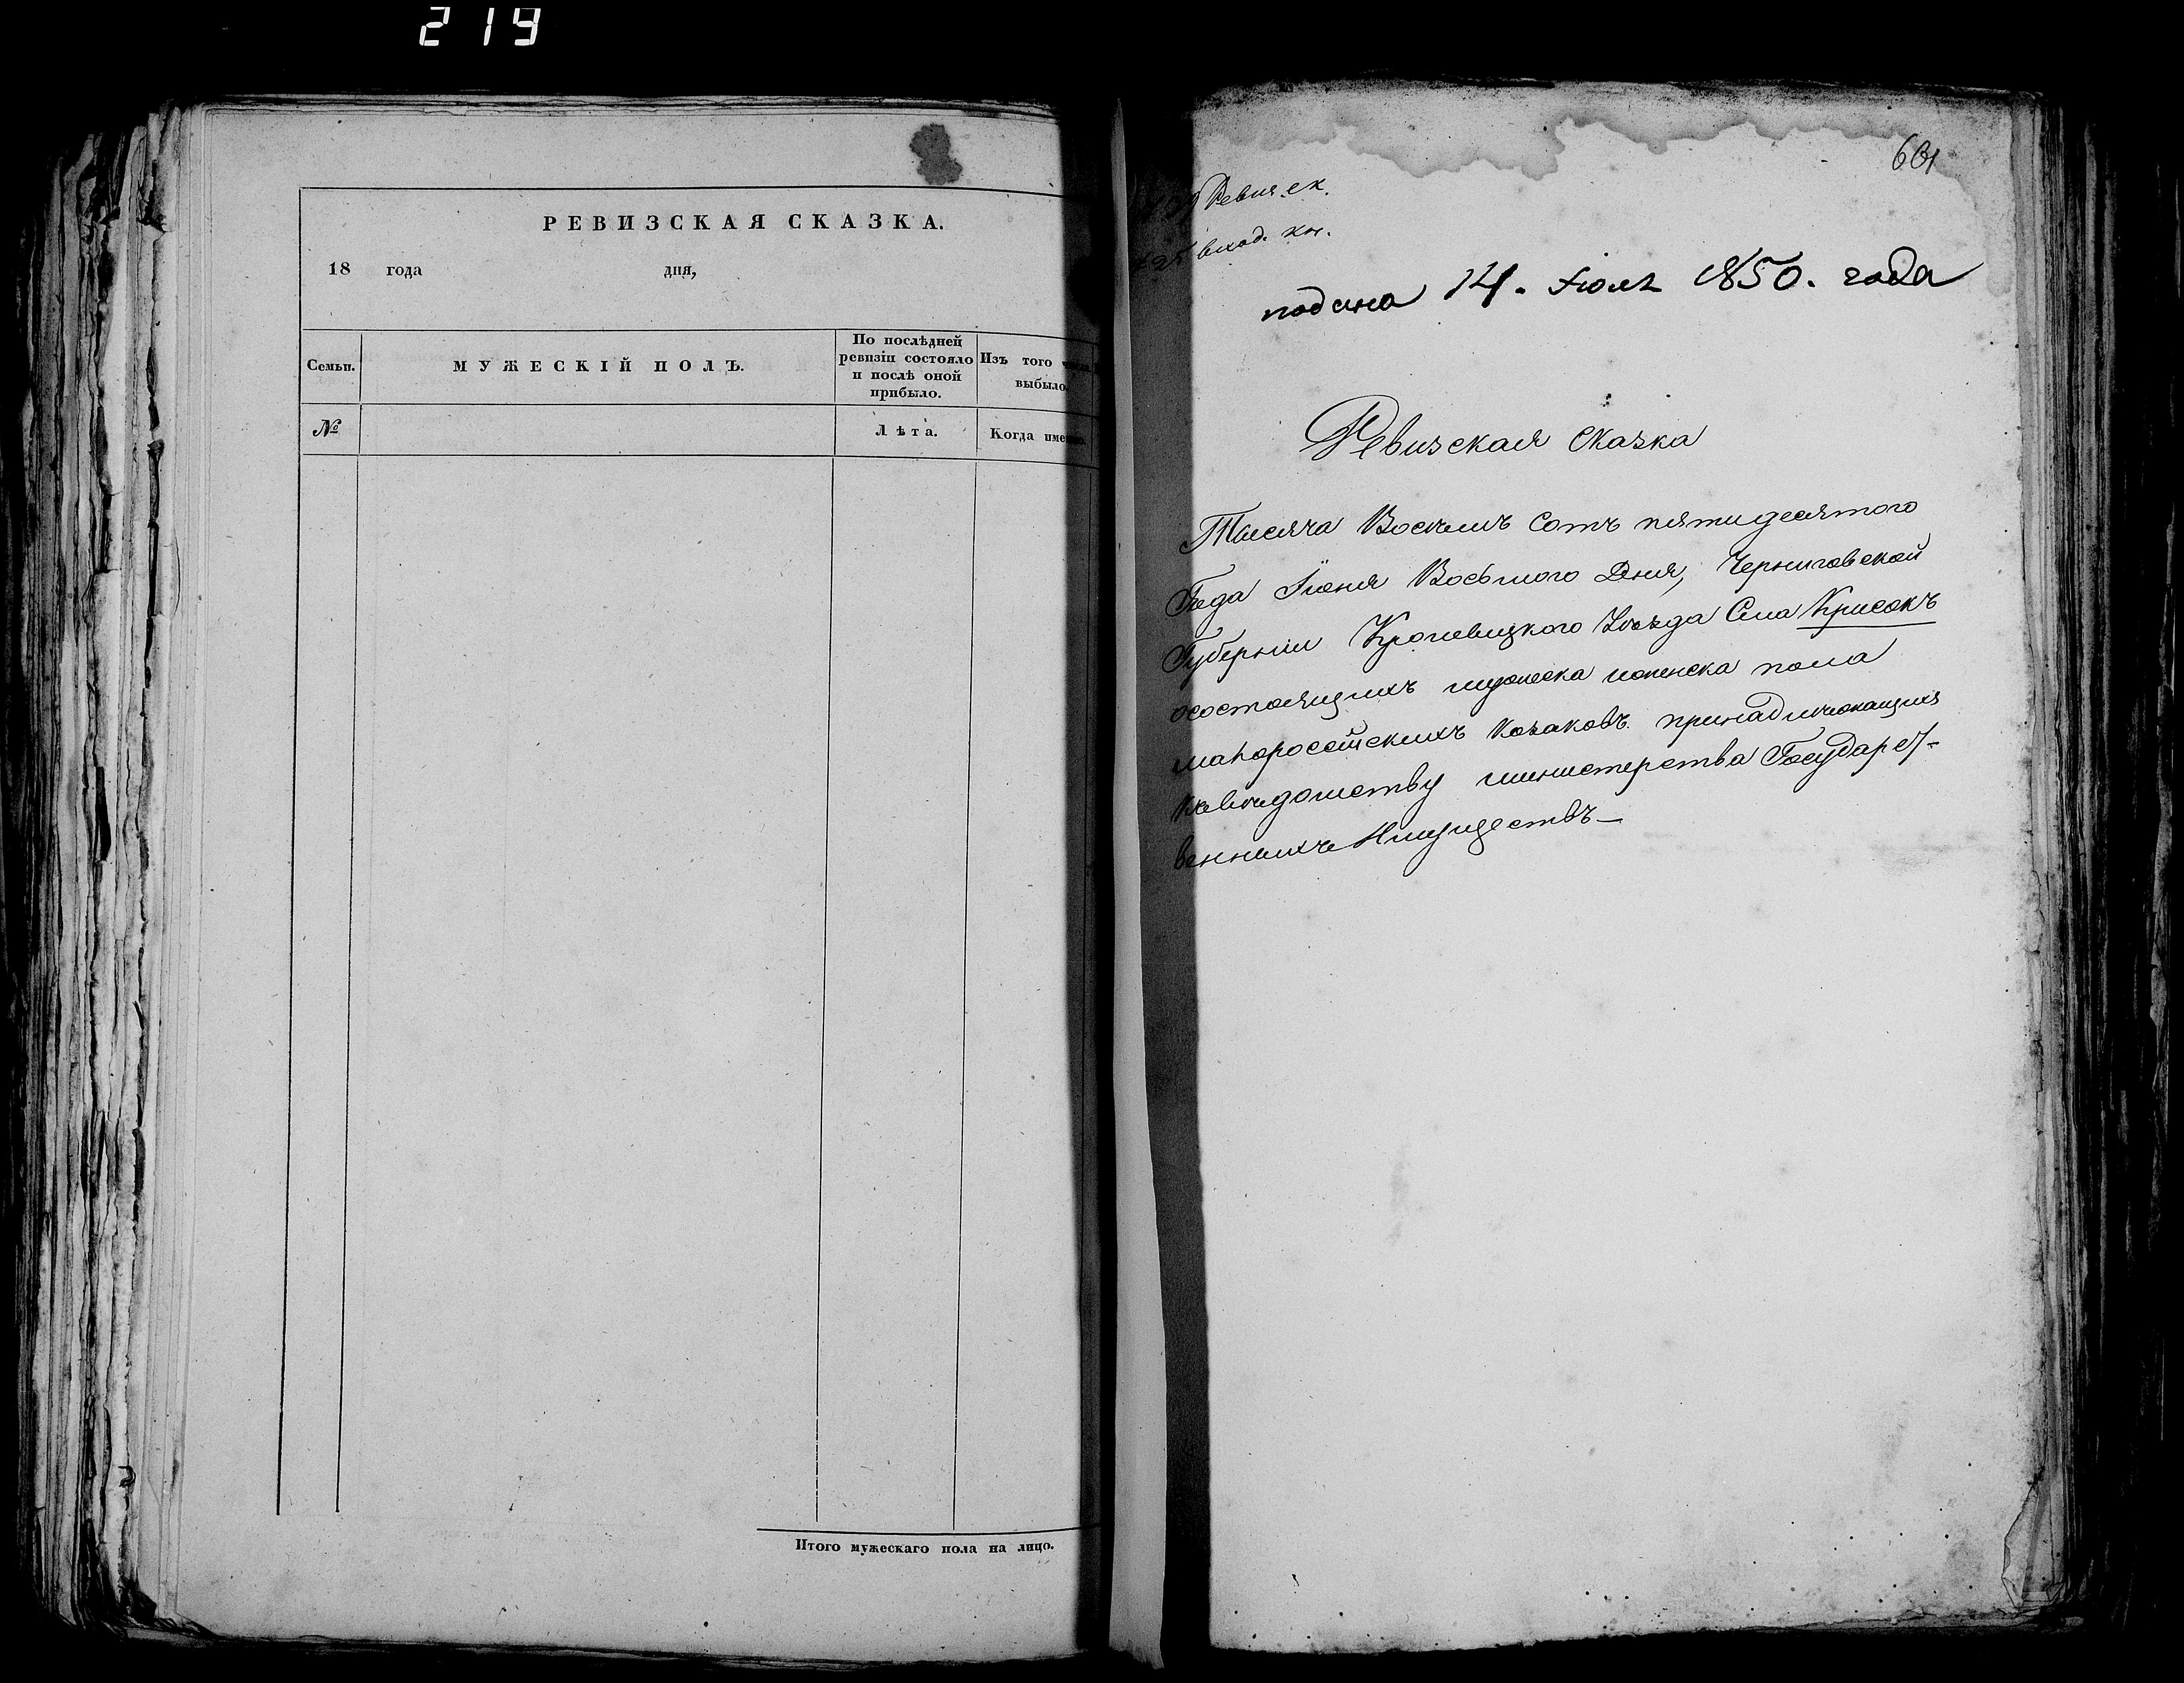 219
РЕВИЗСКАЯ СКАЗКА.
18 года дня,
Семьи.
МУЖЕСКІЙ ПОЛЪ.
По послѣдней
ревизіи состояло
и послѣ оной
прибыло.
Изъ того
выбыло.
№
Лѣта.
Когда
Итого мужескаго пола на лицо.
601
Ревиз. ск.
вход. кн.
подана 14. Июля 1850. года
Ревизская Сказка
Тысяча Восемъ Сотъ пятидесятого
Года Іюня Восьмого Дня, Черниговской
Губерніи Кролевицкого Уѣзда Села Крисокъ
осостоящихъ мужеска иженска пола
малоросейскихъ козаковъ принадлежащихъ
квѣдомству министерства Государст-
венныхъ Имуществъ—